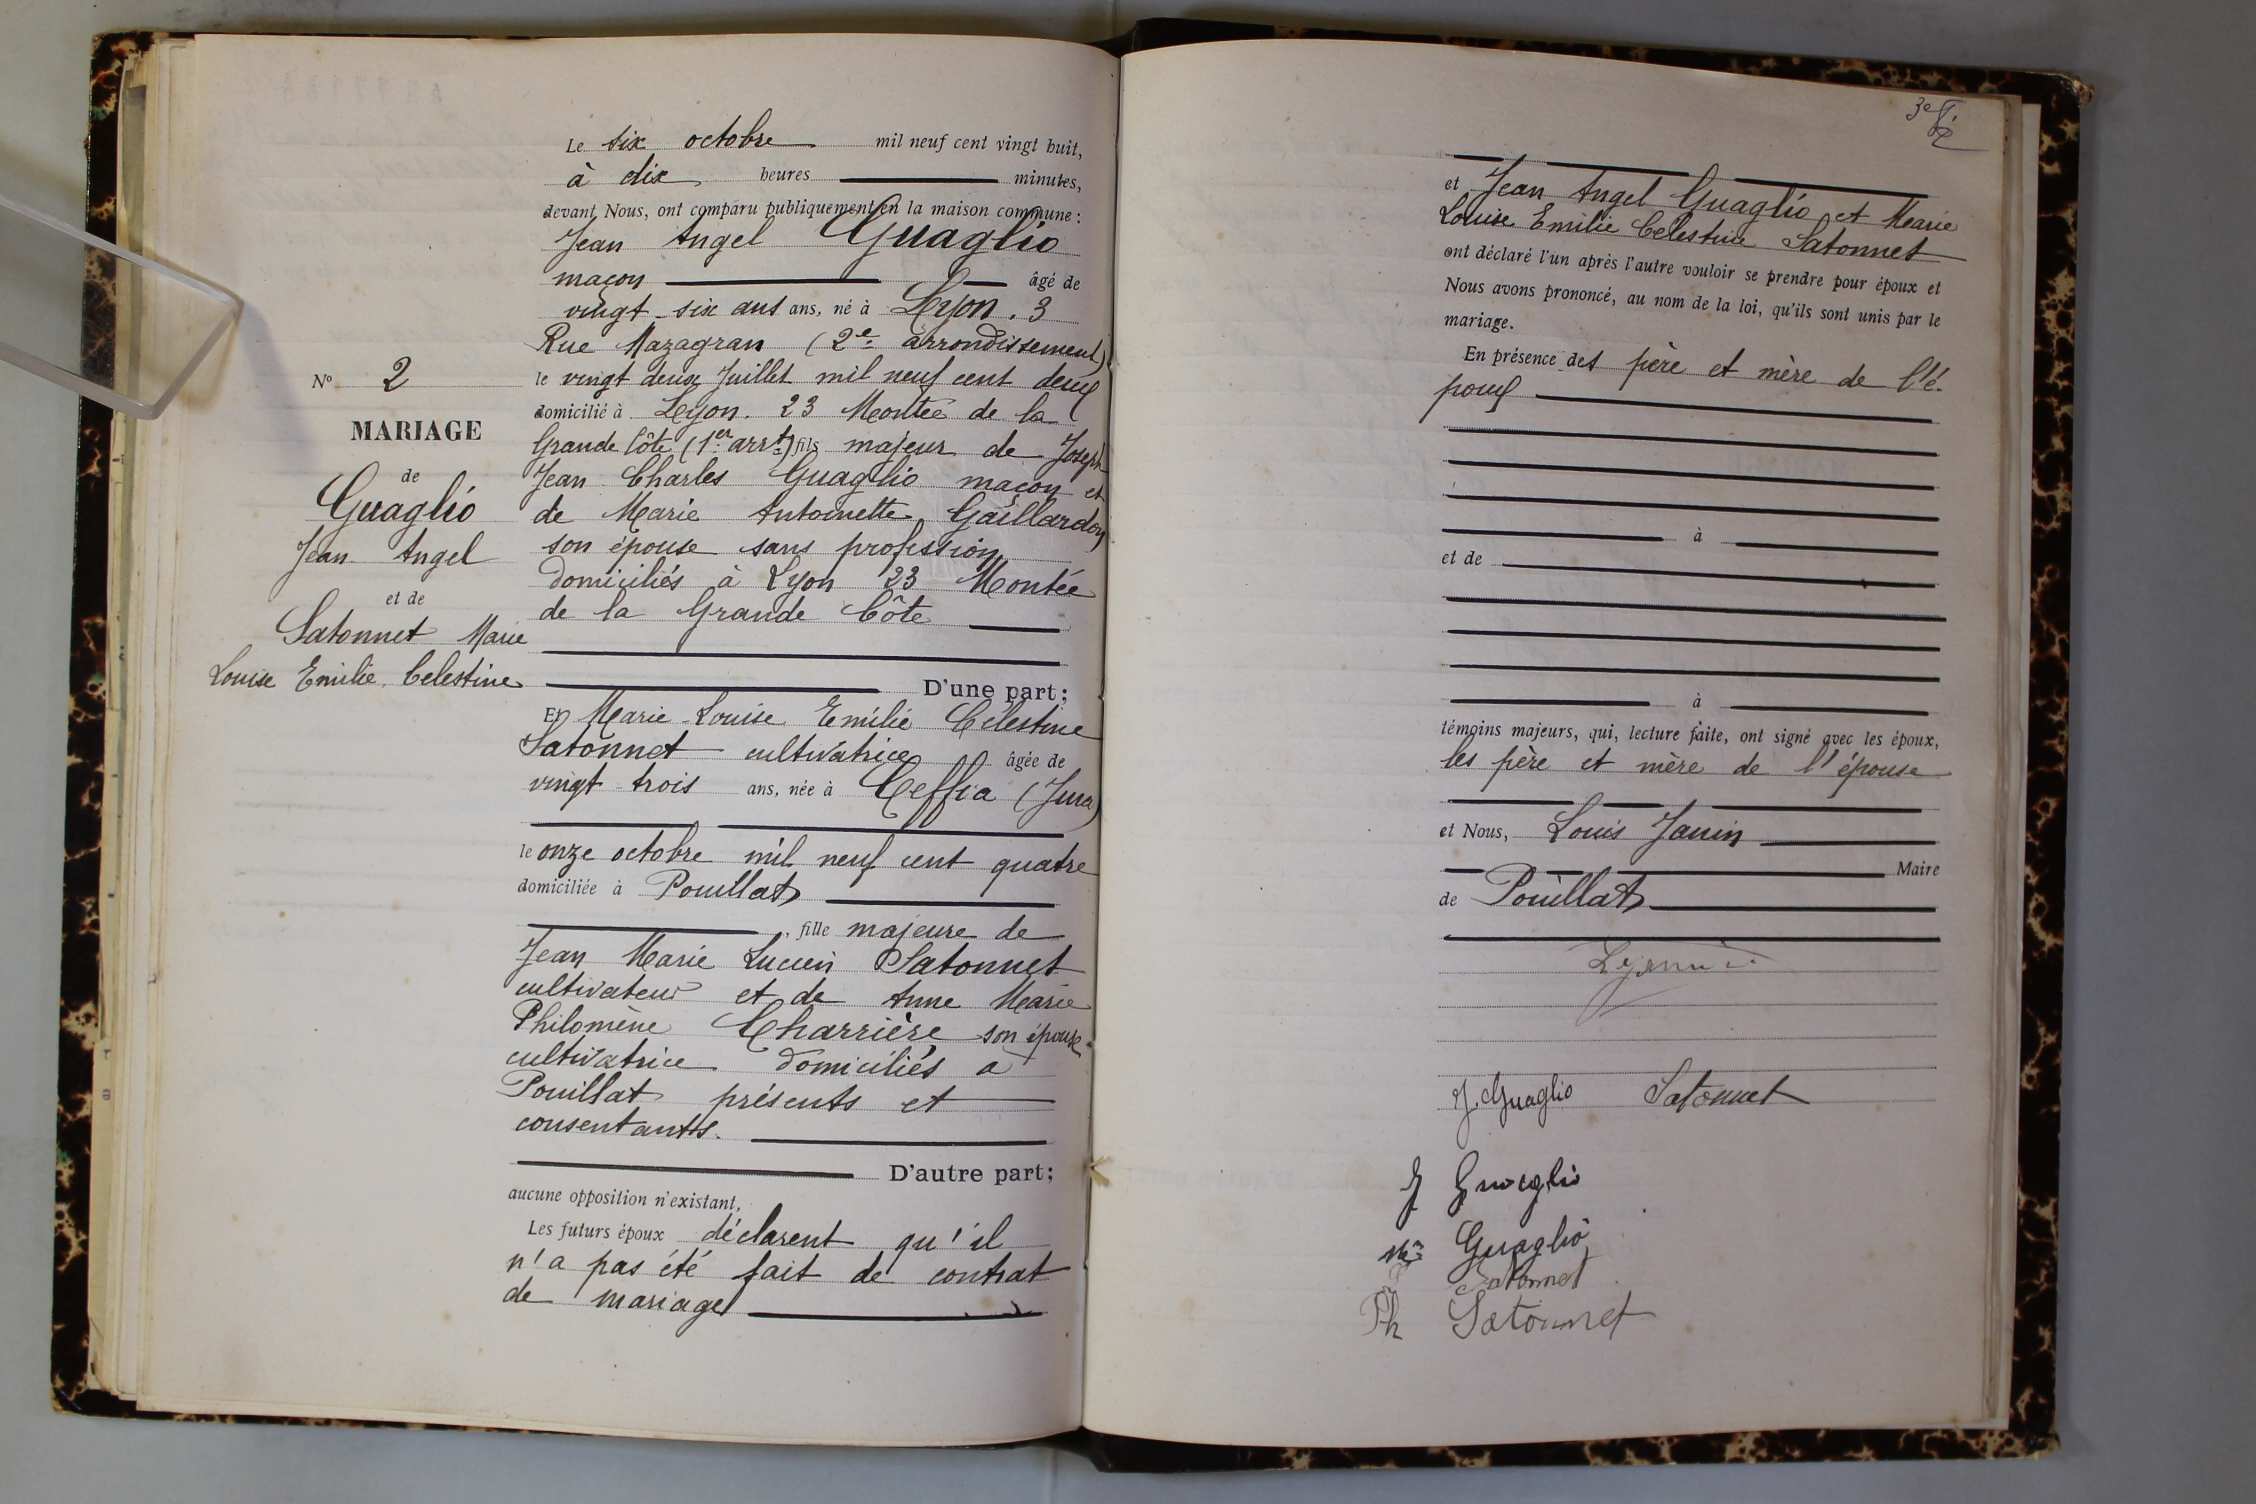 Le six octobre mil neuf cent vingt huit,
à dix heures minutes,
devant Nous, ont comparu publiquement en la maison commune :
Jean Angel Guaglio
maçon âgé de
vingt-six ans ans, né à Lyon. 3
Rue Mazagran (2e arrondissement)
le vingt deux Juillet mil neuf cent deux
domicilié à Lyon. 23 Montée de la
Grande Côte (1er arrt) fils majeur de Joseph
Jean Charles Guaglio maçon et
de Marie Antoinette Gaillardon
son épouse sans profession
domiciliés à Lyon 23 Montée
de la Grande Côte
D'une part ;
Et Marie-Louise Emilie Celestine
Satonnet cultivatrice âgée de
vingt-trois ans, née à Ceffia (Jura)
le onze octobre mil neuf cent quatre
domiciliée à Pouillat
, fille majeure de
Jean Marie Lucien Satonnet
cultivateur et de Anne Marie
Philomène Charrière son épouse
cultivatrice domiciliés a
Pouillat présents et
consentants.
D'autre part ;
aucune opposition n'existant,
Les futurs époux déclarent qu'il
n'a pas été fait de contrat
de mariage
No 2
MARIAGE
de
Guaglio
Jean Angel
et de
Satonnet Marie
Louise Emilie Celestine
et Jean Angel Guaglio et Marie
Louise Emilie Celestine Satonnet
ont déclaré l'un après l'autre vouloir se prendre pour époux et
Nous avons prononcé, au nom de la loi, qu'ils sont unis par le
mariage.
En présence des père et mère de l'é-
poux
à
et de
à
témoins majeurs, qui, lecture faite, ont signé avec les époux,
les père et mère de l'épouse
et Nous, Louis Janin
Maire
de Pouillat
J. Guaglio Satonnet
J Guaglio
Guaglio
Satonnet
Ph Satonnet